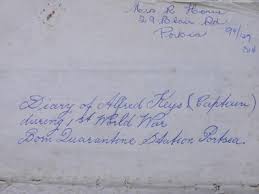 Mrs R Horne
29 Blair Rd
Portsea
Diary of Alfred Keys (Captain)
during 1st World War
Bom Quarantine Station Portsea.